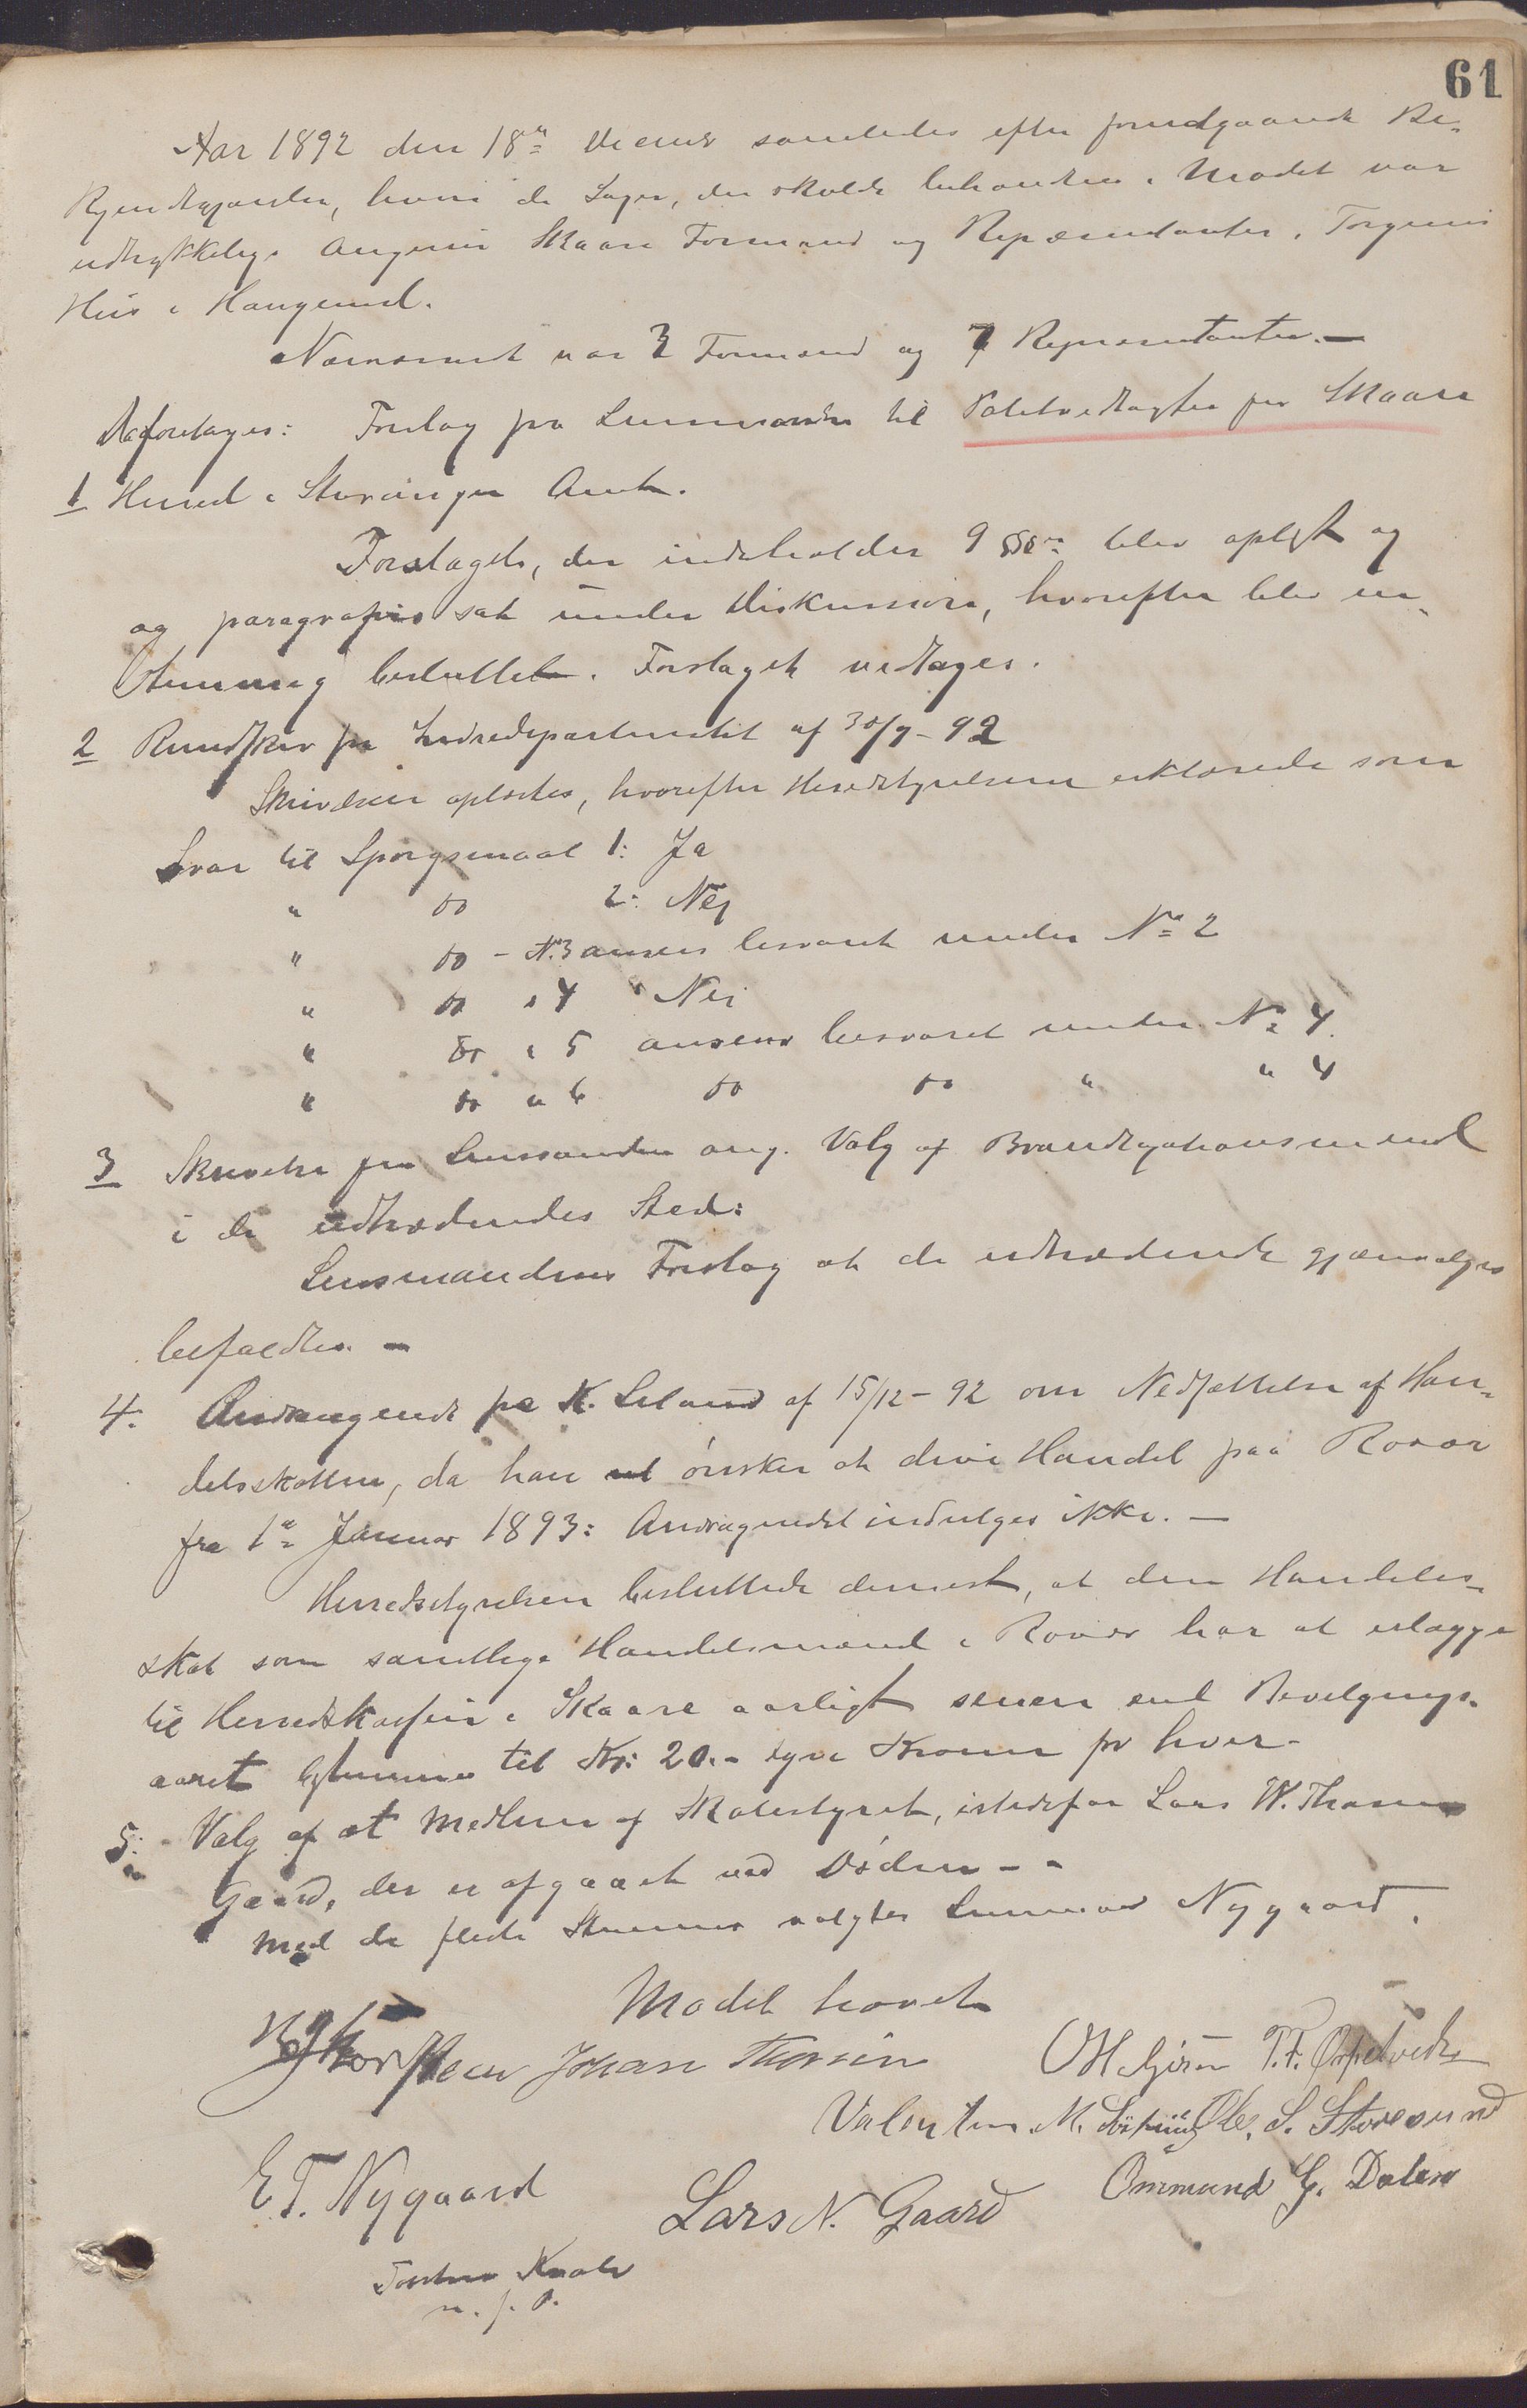 61
Aar 1892 den 18de Decembr samledes efter forudgaaende Be-
kjendtgjørelse, hvori de Sager, der skulde behandles i Mødet var
udtrykkelig angivne Skaare Formænd og Repræsentanter i Torgersens
Hus i Haugesund.
Nærværende var 3 Formænd og 7 Repræsentanter. —
Da foretages: Forslag fra Lensmanden til Politivedtægter for Skaare
1 Herred i Stavanger Amt.
Forslaget, der indeholder 9 §§er blev oplæst og
og paragrafvis sat under Diskussion, hvorefter blev en-
stemmig besluttet. Forslaget vedtages.
2 Rundskriv fra Indredepartementet af 30/9 - 92
Skrivelsen oplæstes, hvorefter Herredstyrelsen erklærede som
Svar til Spørgsmaal 1: Ja
" do 2: Nej
" do - N.3 ansees besvaret under No 2
" do " 4 " Nei
" do " 5 ansees besvaret under No 4.
" do " 6 do do " " 4
3 Skrivelse fra Lensmanden ang. Valg af Brandtaxationsmænd
i de udtrædendes Sted:
Lensmandens Forslag at de udtrædende gjenvælges
bifaldtes. —
4. Andragende fra K. Leland af 15/12 - 92 om Nedsættelse af Han-
delsskatten, da han ønsker at drive Handel paa Røvær
fra 1ste Januar 1893: Andragendet indvilges ikke. —
Herredsstyrelsen besluttede dernæst, at den Handels-
skat som samtlige Handelsmænd i Røvær har at erlægge
til Herredskassen i Skaare aarligt senere end Bevilgnings-
aaret bestemmes til Kr: 20.- tyve Kroner pr hver.
5: Valg af et Medlem af Skatestyret, istedetfor Lars W. Thorsen
Gaard, der er afgaaet ved Døden - -
Med de fleste Stemmer valgtes Lensmand Nygaard.
Mødet hævet
Johan Thorsen
T. T.
Valentin M. Ole. S. Storesund
E T. Nygaard
Lars N. Gaard
Ommund G. Dalen